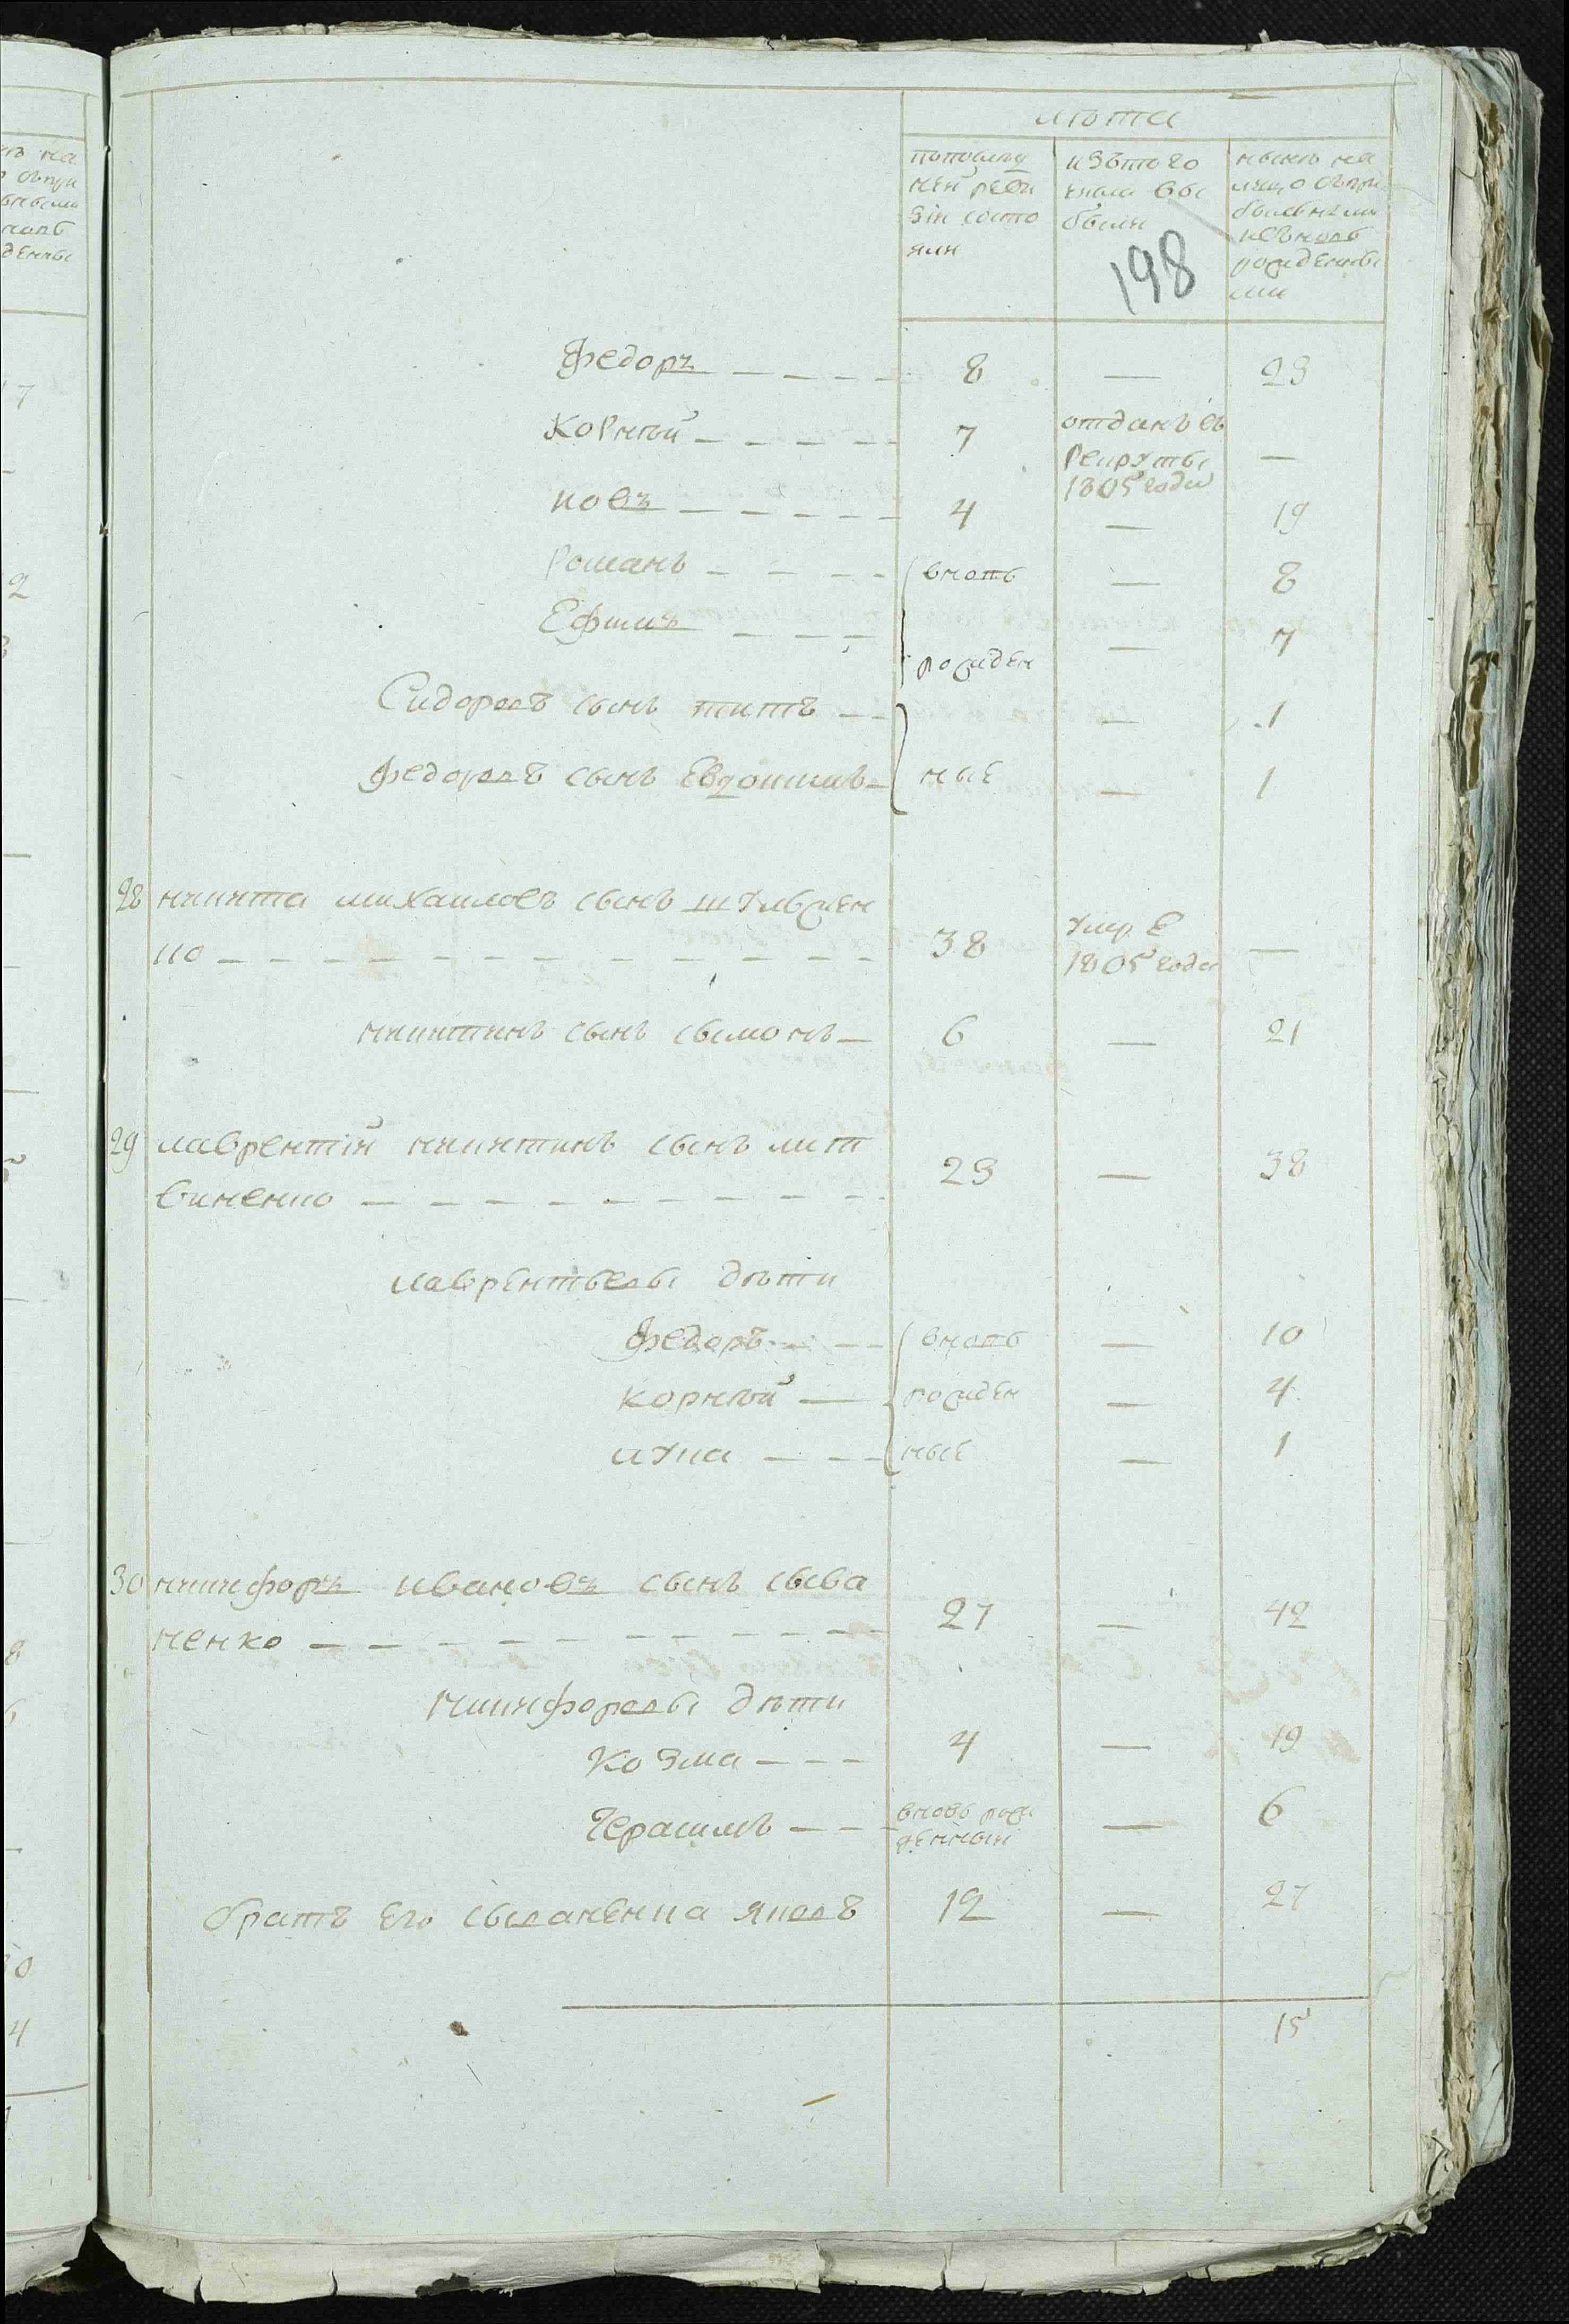 лѣта
попослед
ней реви
зiи состо
яли
изътого
числа вы
были
нынѣ на
лицо съпри
былыми
исъновь
рожденны
ми
198
Федоръ 8 — 23
Корнѣй 7 отданъ въ
рекруты
1805 года —
Иовъ 4 — 19
Романъ вновь — 8
Ефимъ — 7
рожден
Сидоровъ сынъ титъ — 1
Федоровъ сынъ Евдокимъ ные — 1
28 никита михаиловъ сынъ шульжен
ко 38 умре
1805 года —
никитинъ сынъ сымонъ 6 — 21
29 лаврентiй никитинъ сынъ лит
виненко 23 — 38
лаврентьевы дѣти
Федоръ вновь — 10
корнѣй рожден — 4
лука ные — 1
30 никифоръ ивановъ сынъ сыва
ненко 27 — 42
никифоровы дѣти
козма 4 — 19
Герасимъ вновь рож
денный — 6
братъ его сываненка яковъ 12 — 27
15